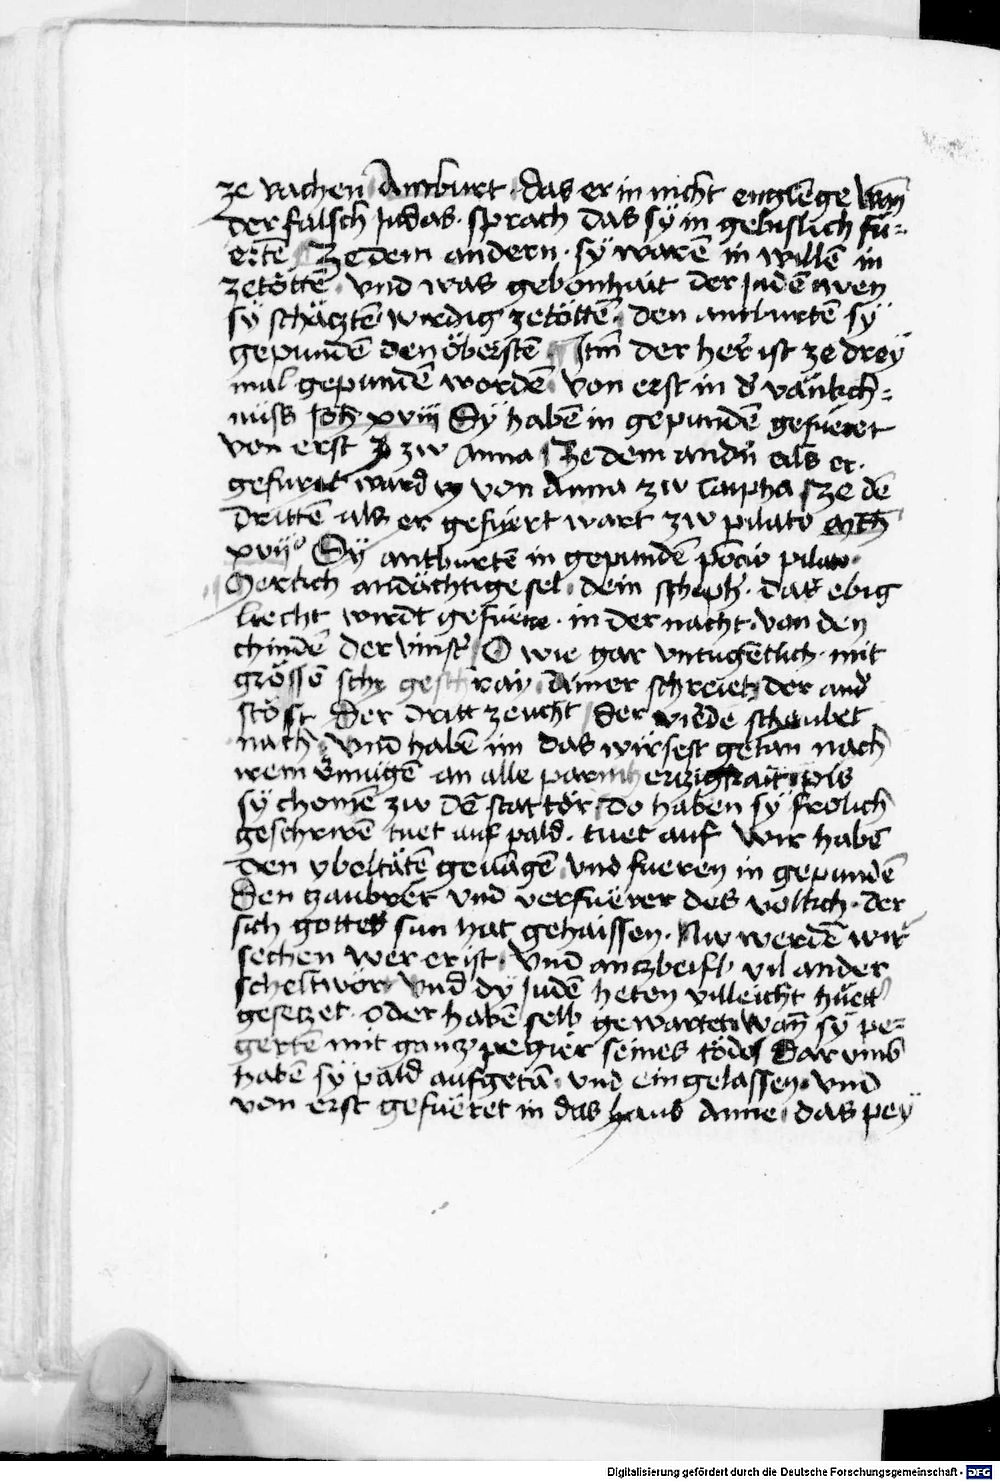 ze vachen Antburt · das er in nicht englenge wan̄
der falsch Judas · sprach das sy in gebislich fü-
erten̄ Ze dem andern · sy waren̄ in willen̄ in
zetötten̄ vnd was gebonhait der Juden̄ wen
sy schäczten̄ wirdig zetötten̄ · den antburten̄ sy
gepunden̄ den öbristen̄ Itm̄ der her̄ ist ze drey
mal gepunden̄ worden̄ von erst in d̄ väñkch-
nüss Joh̄ xviij Sy haben̄ in gepunden̄ gefüeret
von erst zw Anna Ze dem andn̄ als er
gefürt ward von Anna zw Caypha Ze den̄
dritten̄ als er gefüert wart zw pilato mth̄
xvij° Sy antburten̄ in gepunden̄ poncio pilato ·
Herlich andächtige sel · dein schoph̄ · das ebig
liecht wirdt gefüert · in der nacht · von den
chinden̄ der vinst̄ O wie gar vntugentlich · mit
grössem̄ geschray Ainer schreiet der and̄
stösst Der dritt zeucht Der vierde schaubet
nach · vnd haben im das wirsest getan nach
irem vmügen̄ an alle parmherczigkait pis
sy chomen̄ zw den̄ stat tör · do haben sy frolich
geschriren̄ tuet auf pald · tuet auf Wir haben̄
den vbeltäten̄ geuangen̄ vnd fueren in gepunden̄
Den zaubrer vnd verfüerer des volkch · der
sich gottes sun hat gehaissen · Nw werden̄ wir
sechen wer er ist · vnd anczbeifl vil ander
scheltwort vnd dy Juden̄ heten villeicht hüett̄
geseczet · oder haben̄ selb gewartet wan̄ sy pe-
gerten̄ mit gancz pegier seines tödes Dar vmb
haben̄ sy pald aufgetan̄ · vnd ein gelassen · vnd
von erst gefüeret in das haus Anne · das pey
Digitalisierung gefördert durch die Deutsche Forschungsgemeinschaft - DFG